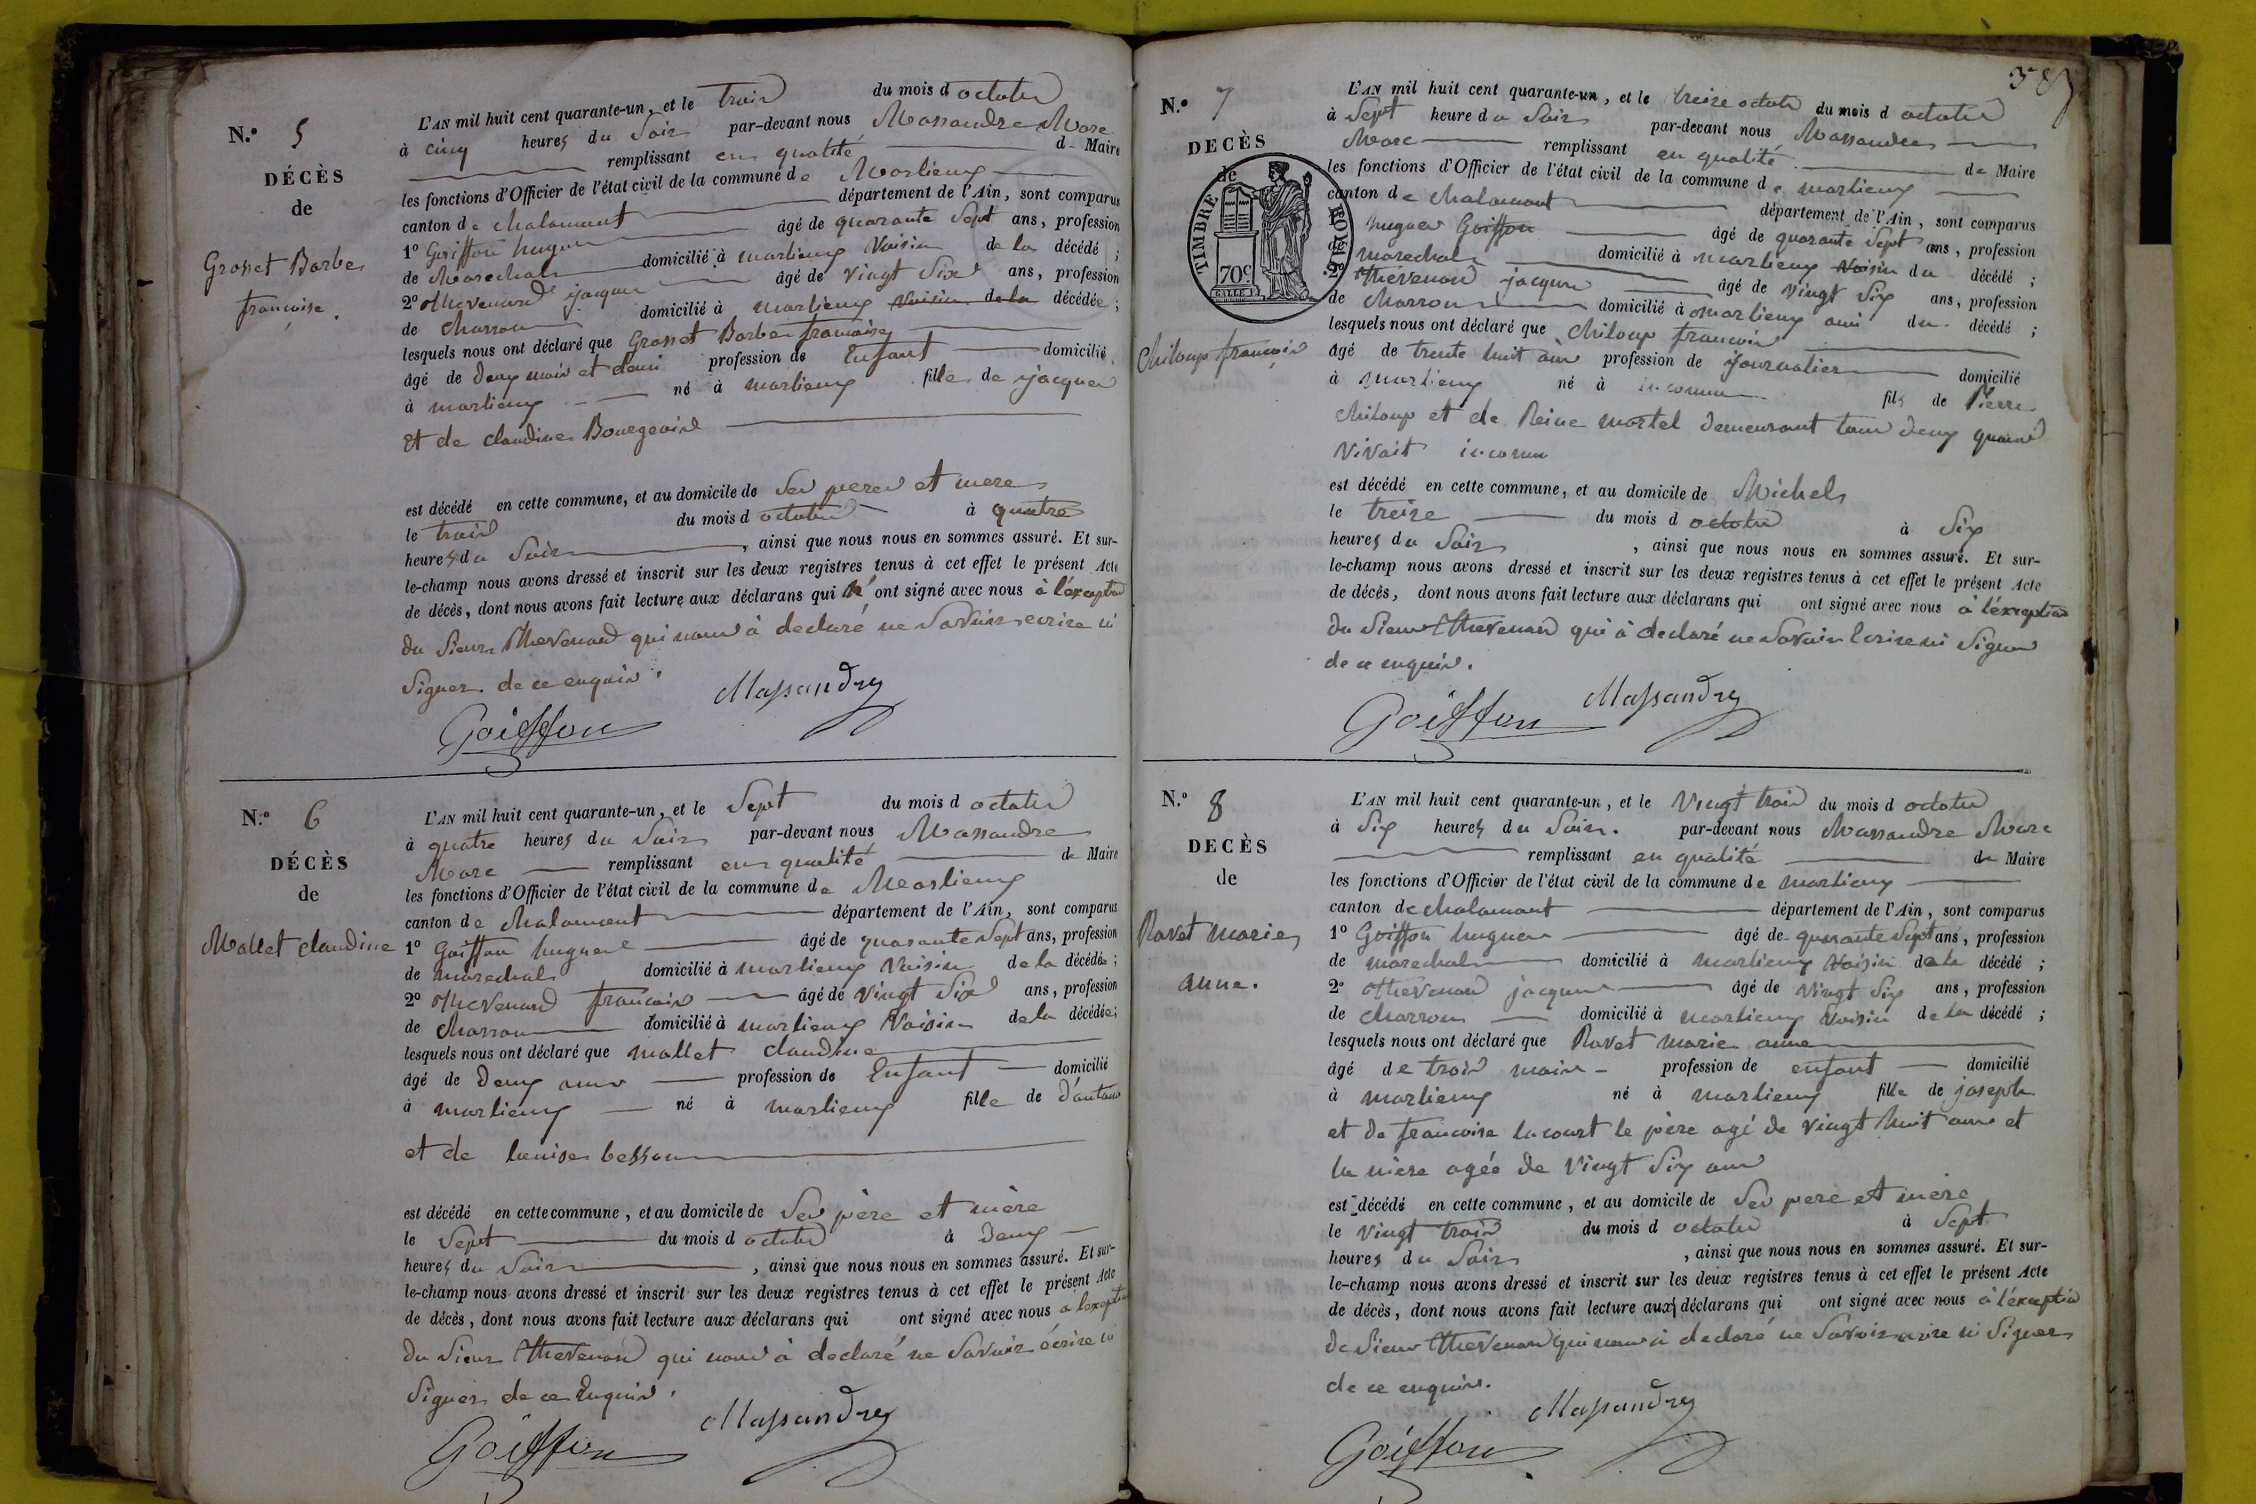 N.º 5
DÉCÈS
de
Grosset Barbe
françoise.
L'AN mil huit cent quarante-un, et le trois du mois d octobre
à cinq heures du Soir par-devant nous Massandre Marc
remplissant en qualité de Maire
les fonctions d'Officier de l'état civil de la commune de Marlieux
canton de chalamont département de l'Ain, sont comparus
1º Goiffon hugues âgé de quarante Sept ans, profession
de Marechal domicilié à marlieux Voisin de la décédé ;
2º thevenard jacques âgé de vingt Six ans, profession
de charron domicilié à marlieux Voisin de la décédée ;
lesquels nous ont déclaré que Grosset Barbe francoise
âgé de deux mois et demi profession de Enfant domicilié
à marlieux né à marlieux fille de jacques
Et de claudine Bourgeois
est décédé en cette commune, et au domicile de Ses peres et mere
le trois du mois d octobre à quatre
heures du Soir , ainsi que nous nous en sommes assuré. Et sur-
le-champ nous avons dressé et inscrit sur les deux registres tenus à cet effet le présent Acte
de décès, dont nous avons fait lecture aux déclarans qui ont signé avec nous à l'exception
du Sieur Thevenard qui nous à declaré ne Savoir ecrire ni
Signer de ce enquis.
Massandre
Goiffon
N.º 6
DÉCÈS
de
Mallet claudine
L'AN mil huit cent quarante-un, et le Sept du mois d octobre
à quatre heures du Soir par-devant nous Massandre
Marc remplissant en qualité de Maire
les fonctions d'Officier de l'état civil de la commune de Marlieux
canton de chalamont département de l'Ain, sont comparus
1º Goiffon hugues âgé de quarante Sept ans, profession
de marechal domicilié à marlieux Voisin de la décédée ;
2º thevenard francois âgé de vingt Six ans, profession
de charron domicilié à marlieux Voisin de la décédée ;
lesquels nous ont déclaré que mallet claudine
âgé de deux ans profession de Enfant domicilié
à marlieux né à marlieux fille de d'antoine
et de louise besson
est décédé en cette commune, et au domicile de Ses père et mère
le Sept du mois d octobre à deux
heures du Soir , ainsi que nous nous en sommes assuré. Et sur-
le-champ nous avons dressé et inscrit sur les deux registres tenus à cet effet le présent Acte
de décès, dont nous avons fait lecture aux déclarans qui ont signé avec nous a lexception
du Sieur Thevenard qui nous à declaré ne Savoir écrire ni
Signer de ce Enquis.
Massandre
Goiffon
N.º 7
DECÈS
de
TIMBRE ROYAL
70c
chiloup françois
L'AN mil huit cent quarante-un, et le treize octobre du mois d octobre
à Sept heure du Soir par-devant nous Massandre
Marc remplissant en qualité de Maire
les fonctions d'Officier de l'état civil de la commune de marlieux
canton de chalamont département de l'Ain, sont comparus
hugues Goiffon âgé de quarante Sept ans, profession
de marechal domicilié à marlieux Voisin du décédé ;
2º thévenard jacques âgé de vingt Six ans, profession
de charron domicilié à marlieux ami du décédé ;
lesquels nous ont déclaré que chiloup francois
âgé de trente huit ans profession de journalier domicilié
à marlieux né à inconnu fils de Pierre
chiloup et de Reine mortel demeurant tous deux quand
vivait inconnu
est décédé en cette commune, et au domicile de Michel
le treize du mois d octobre à Six
heures du Soir , ainsi que nous nous en sommes assuré. Et sur-
le-champ nous avons dressé et inscrit sur les deux registres tenus à cet effet le présent Acte
de décès, dont nous avons fait lecture aux déclarans qui ont signé avec nous à l'éxception
du Sieur Thevenard qui à declaré ne Savoir Ecrire ni Signer
de ce enquis.
Massandre
Goiffon
N.º 8
DECÈS
de
Ravet marie
anne.
L'AN mil huit cent quarante-un, et le Vingt trois du mois d octobre
à Six heures du Soir. par-devant nous Massandre Marc
remplissant en qualité de Maire
les fonctions d'Officier de l'état civil de la commune de marlieux
canton de chalamont département de l'Ain, sont comparus
1º Goiffon hugues âgé de quarante Sept ans, profession
de marechal domicilié à marlieux Voisin de la décédé ;
2º thévenard jacques âgé de vingt Six ans, profession
de charron domicilié à marlieux Voisin de la décédé ;
lesquels nous ont déclaré que Ravet marie anne
âgé de trois mois profession de enfant domicilié
à marlieux né à marlieux fille de joseph
et de francoise lacourt le père agé de vingt huit ans et
la mère agée de Vingt Six ans
est décédé en cette commune, et au domicile de Ses pere et mère
le vingt trois du mois d octobre à Sept
heures du Soir , ainsi que nous nous en sommes assuré. Et sur-
le-champ nous avons dressé et inscrit sur les deux registres tenus à cet effet le présent Acte
de décès, dont nous avons fait lecture aux déclarans qui ont signé avec nous à l'éxception
de Sieur Thevenard qui nous à declaré ne Savoir ecrire ni Signer
de ce enquis.
Massandre
Goiffon